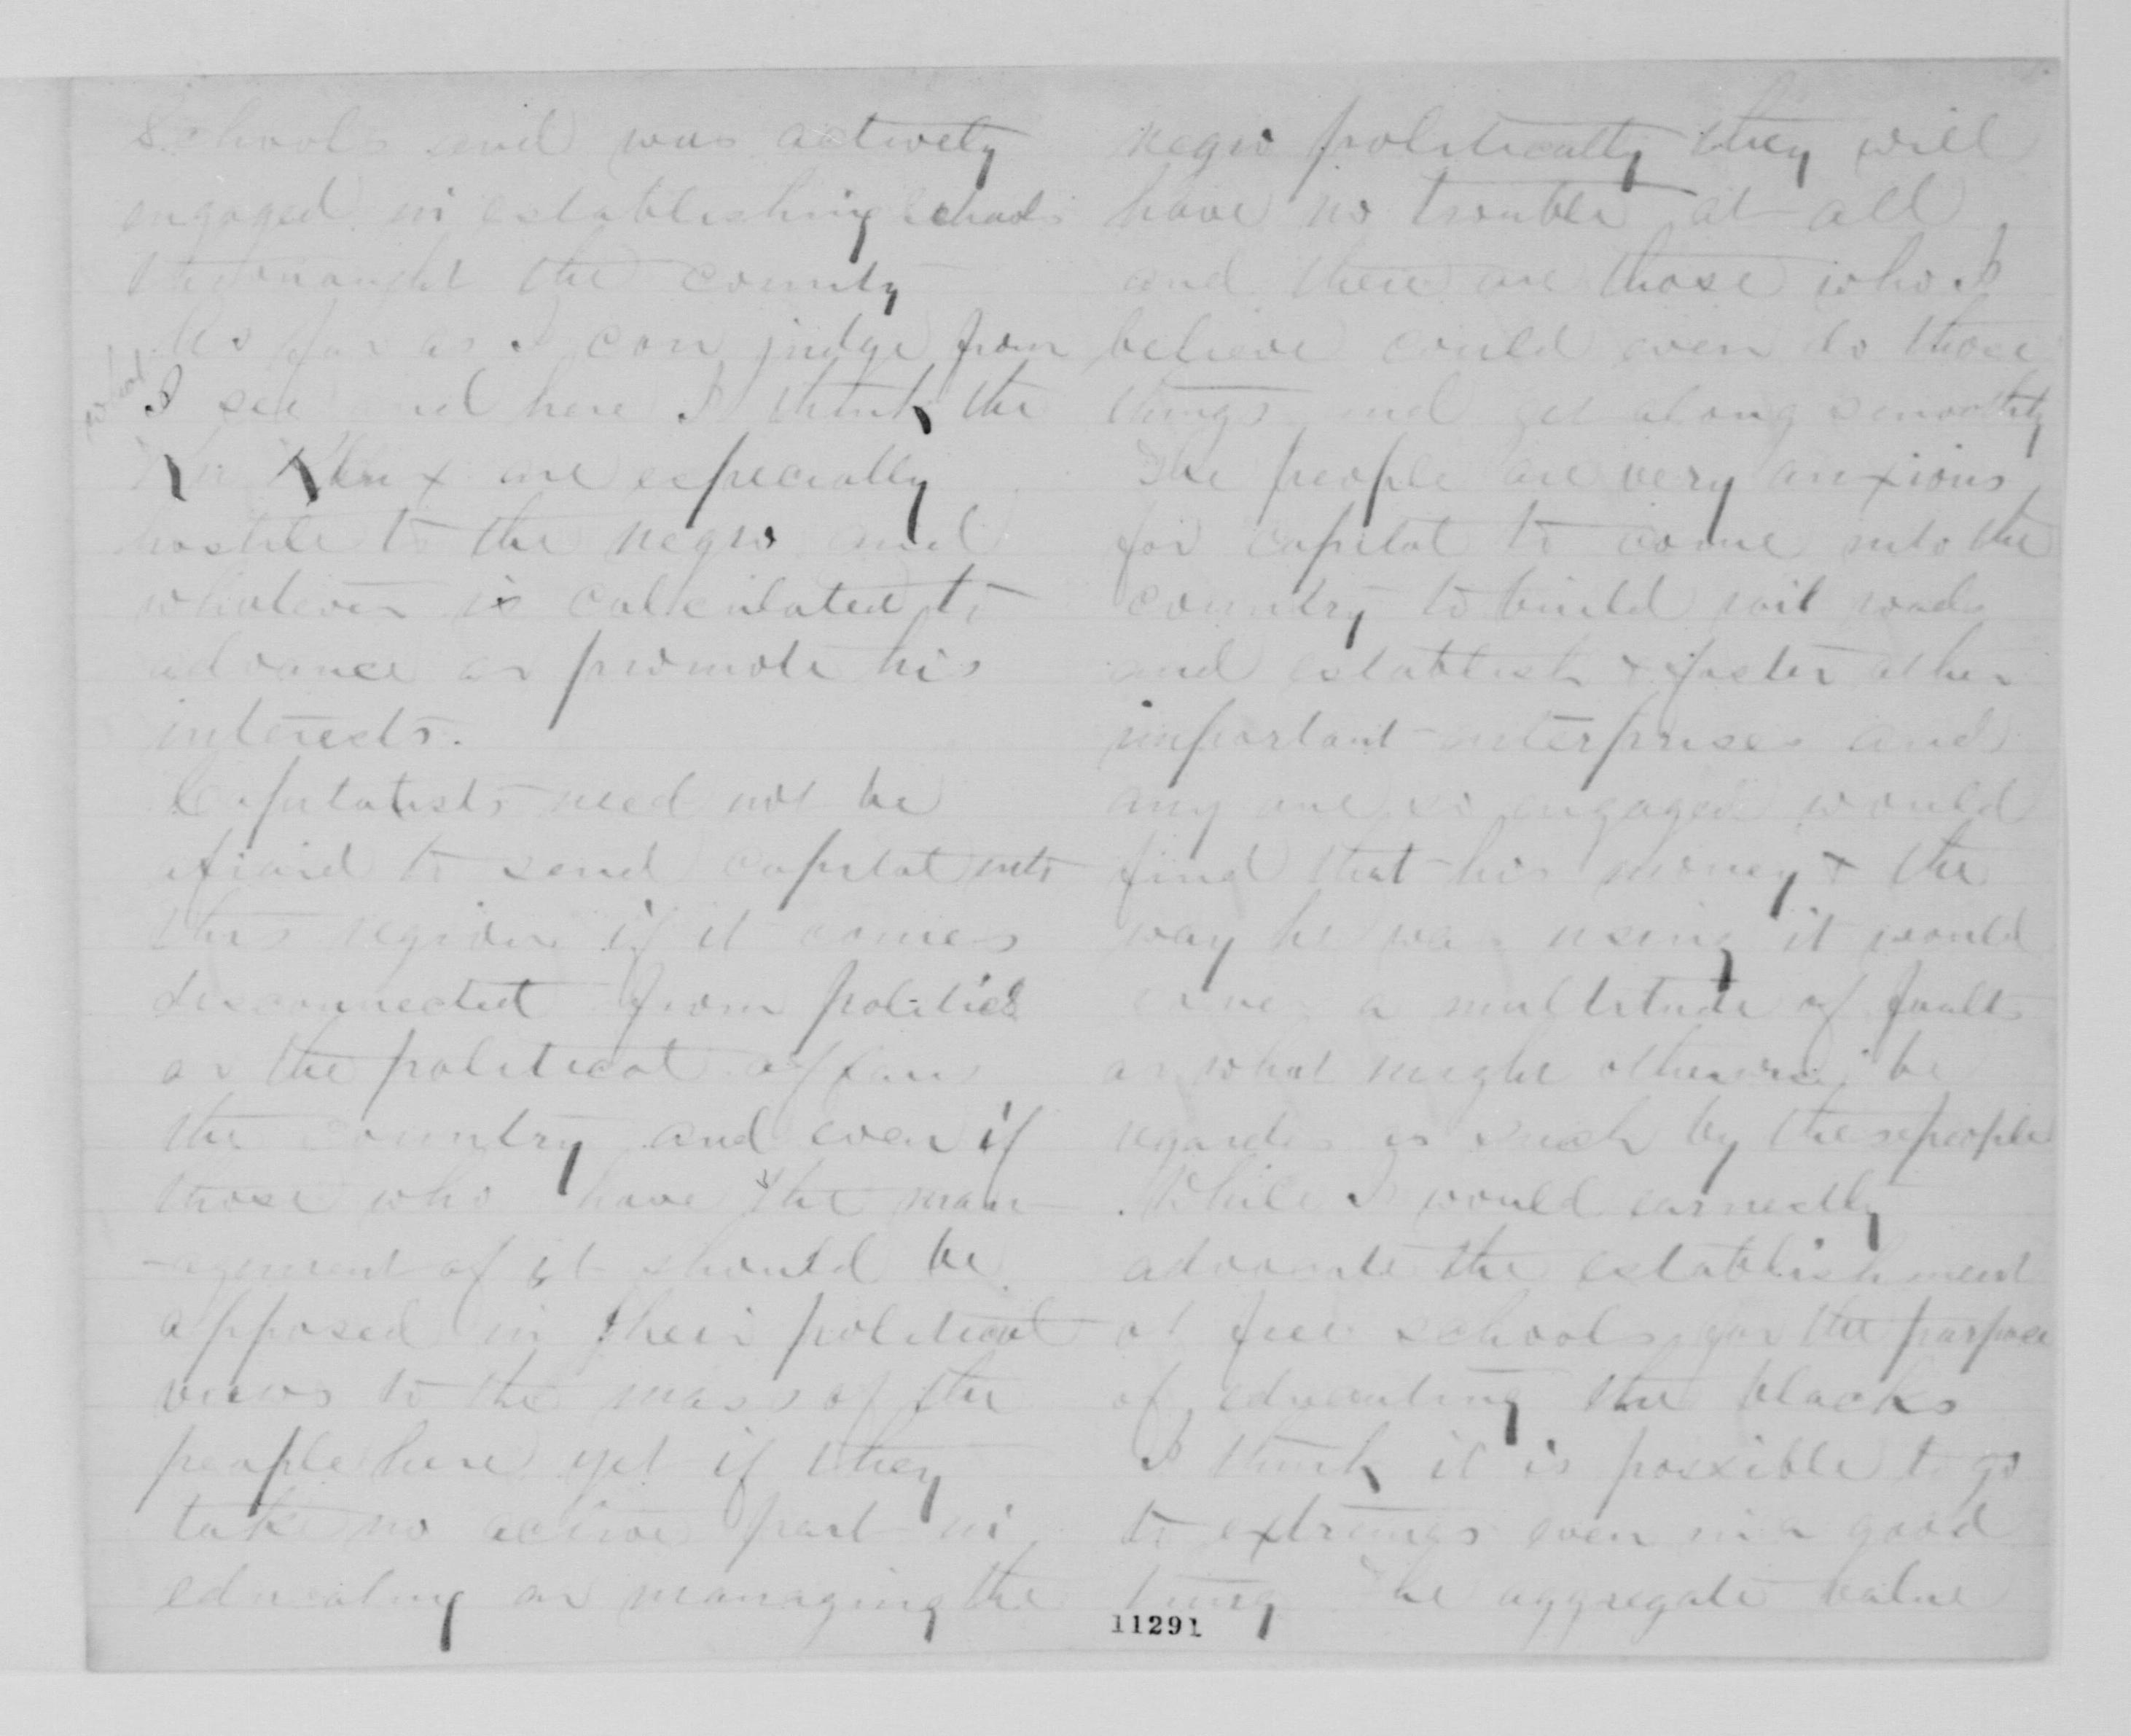 Schools and was actively
engaged in establishing schools
throughout the county
As far as I can judge from
what
I see and here I think the
Ku Klux are especially
hostile to the negro and
whatever is calculated to
advance or promote his
interests.
Capitalists need not be
afraid to send capital into
this region if it comes
disconnected from politics
or the political affairs
the country and even if
those who have the man
-agement of it should be
opposed in their political
views to the mass of the
people here yet if they
take no active part in
educating or managing the
negro politically they will
have no trouble at all
and there are those who I
believe could even do those
things and get along smoothly
The people are very anxious
for capital to come into the
country to build rail roads
and establish & foster other
important enterprises and
any one so engaged would
find that his money & the
way he was using it would
cover a multitude of faults
or what might otherwise be
regarded as such by these people
While I would earnestly
advocate the establishment
of free schools for the purpose
of educating the blacks
I think it is possible to go
to extremes even in a good
thing The aggregate value
11291